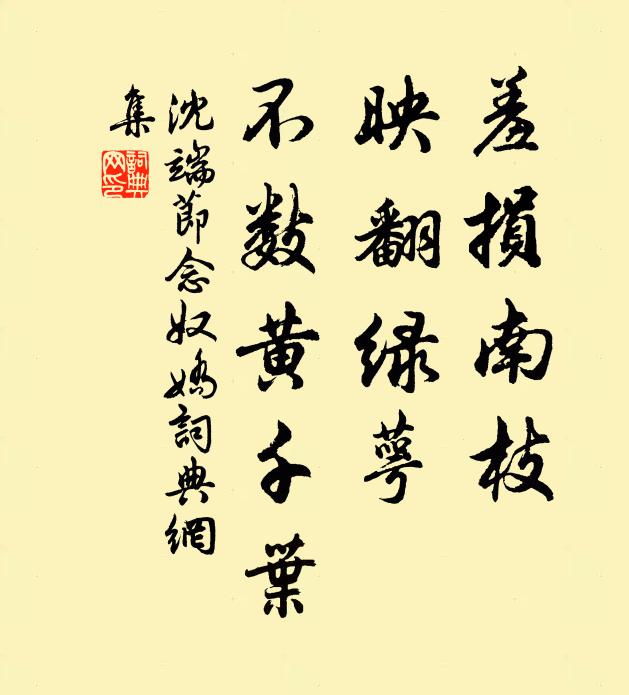 羞損南枝
映翻绿萼
不数黄千葉
沈端節念奴嬌詞典網
集
詞典网印